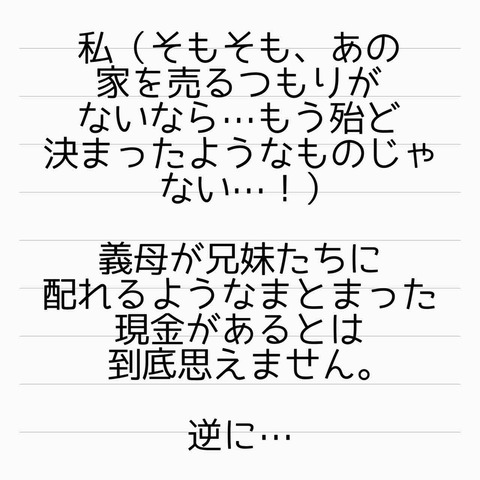 私（そもそも、あの
家を売るつもりが
ないなら…もう殆ど
決まったようなものじゃ
ない…！）
義母が兄妹たちに
配れるようなまとまった
現金があるとは
到底思えません。
逆に…